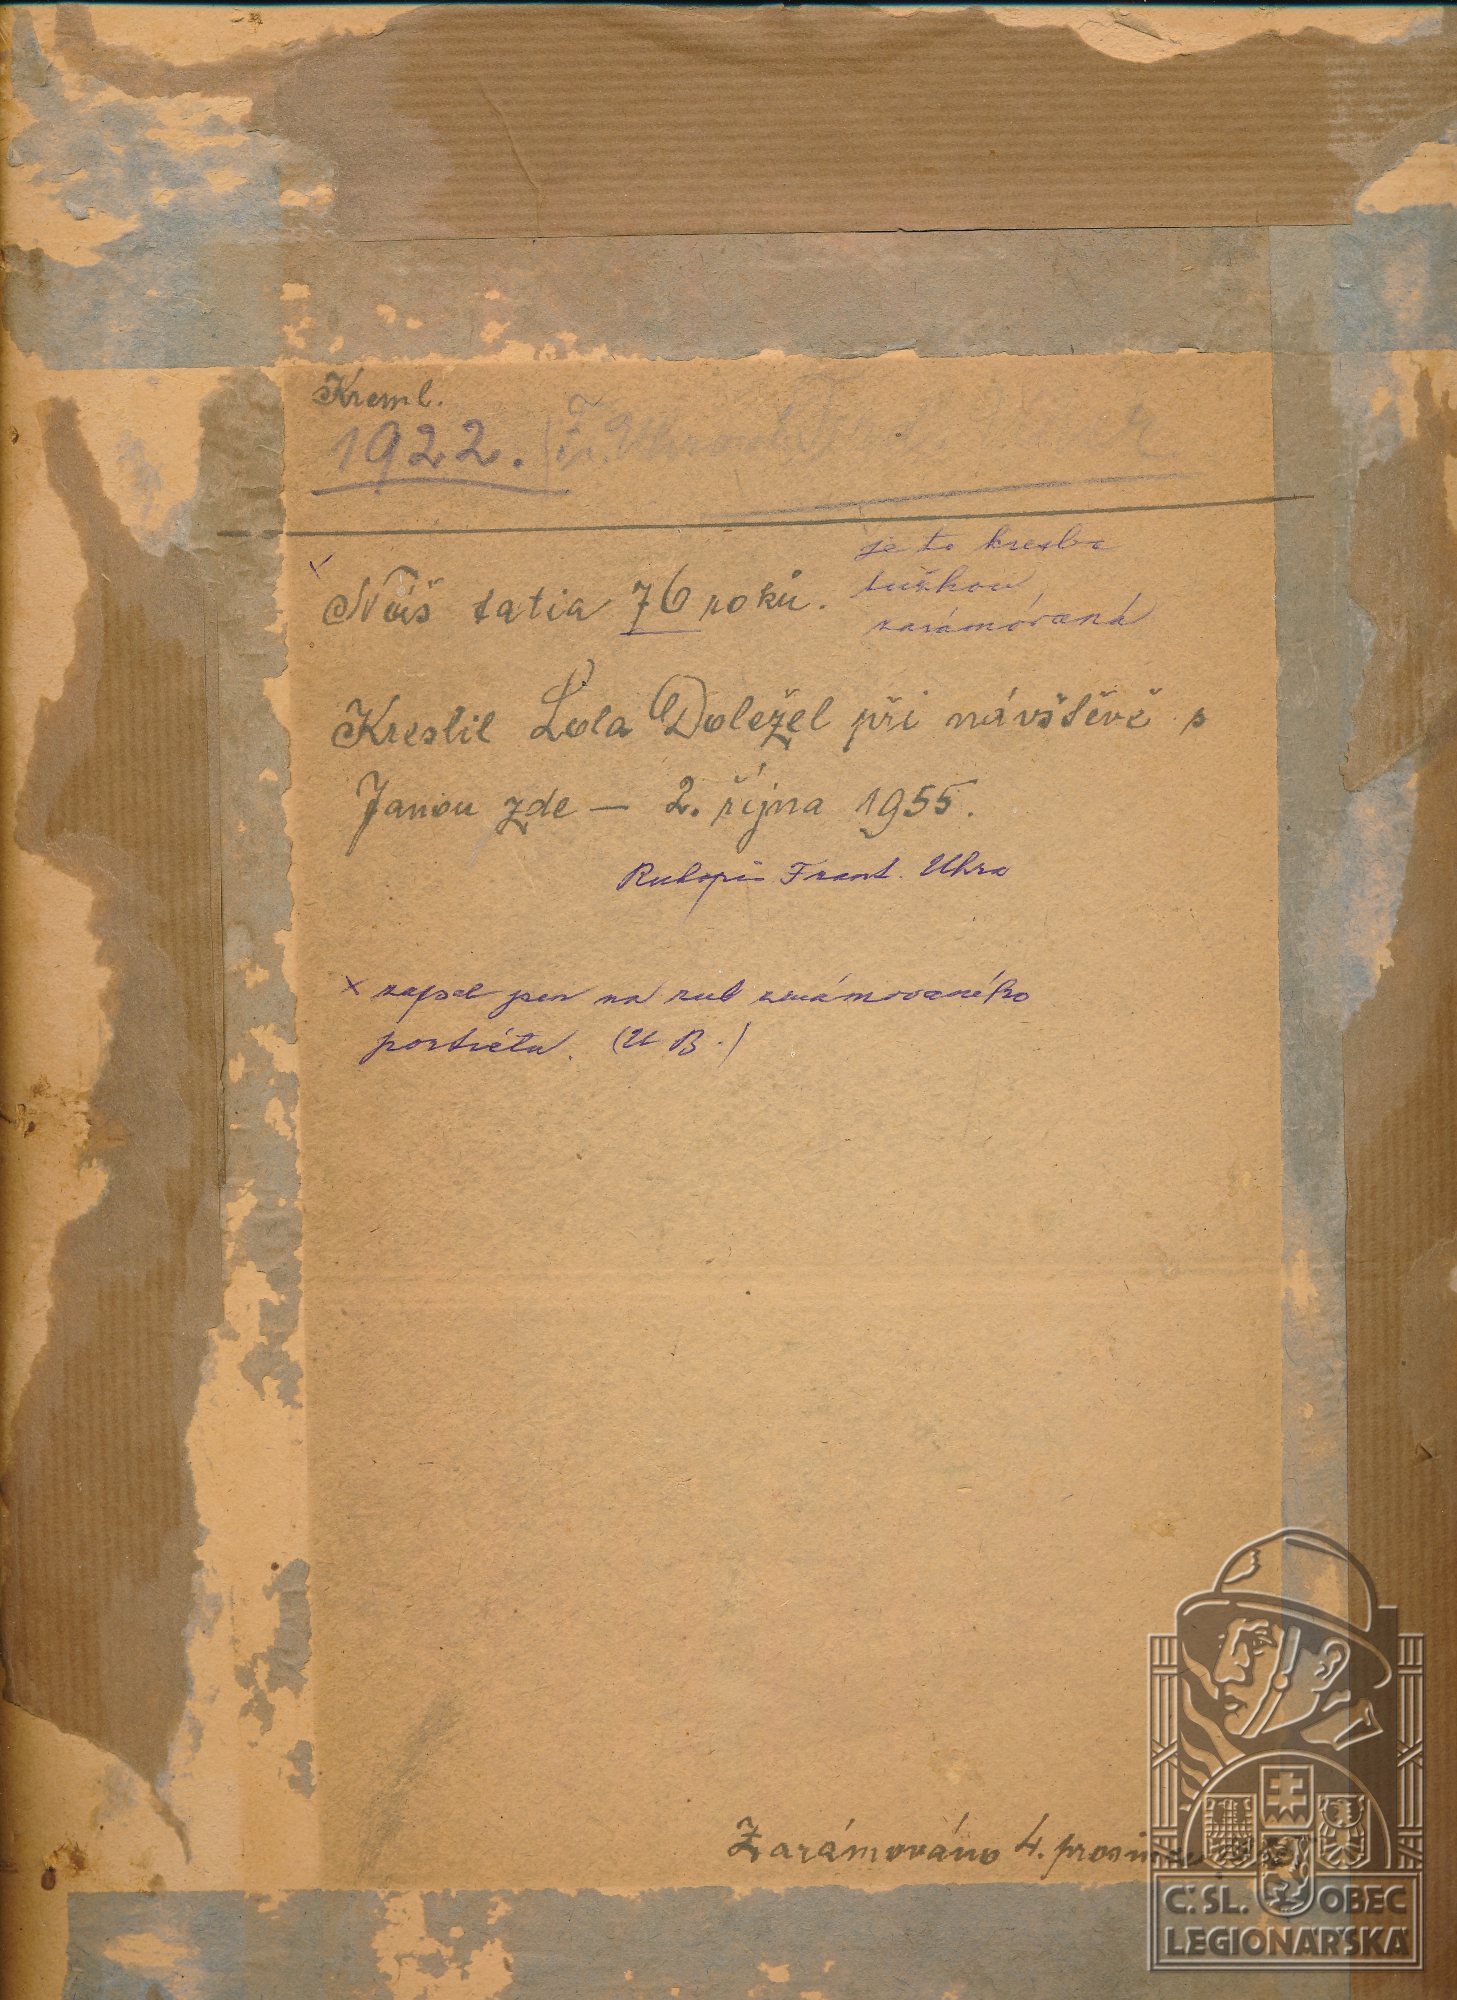 Kreml.
1922. Fr. Uhra
je to kresba
tužkou
zarámovaná
Náš tatia 76 roků.
Kreslil Lola Doležel při návštěvě s
Janou zde — 2. října 1955.
Rukopis Frant. Uhra
x zapsal jsem na rub zarámovaného
portrétu. (U B.)
Zarámováno 4. prosince
Č.SL. OBEC
LEGIONÁŘSKÁ